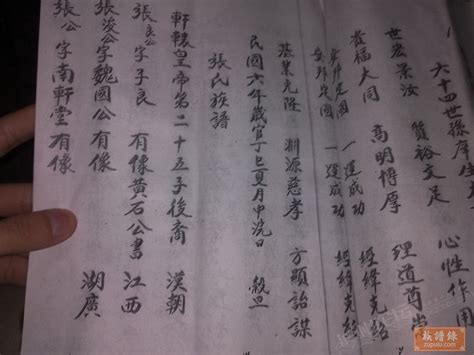 六十四世孫庠生
世宏景汝 質裕文足 心性作用
貴福大同 高明博厚 理道尊
定國 一運成功 經緯克紹
安邦定國 一運成功 經緯克紹
基業克隆 淵源慈孝 方顯詒謀
民國六年歲官丁巳夏月中浣日 穀旦
張氏族譜
軒轅皇帝第二十五子後裔 漢朝
張良公字子良 有像黃石公書 江西
張浚公字魏國公 有像 湖廣
張公字南軒堂 有像
族譜錄
zupulu.com